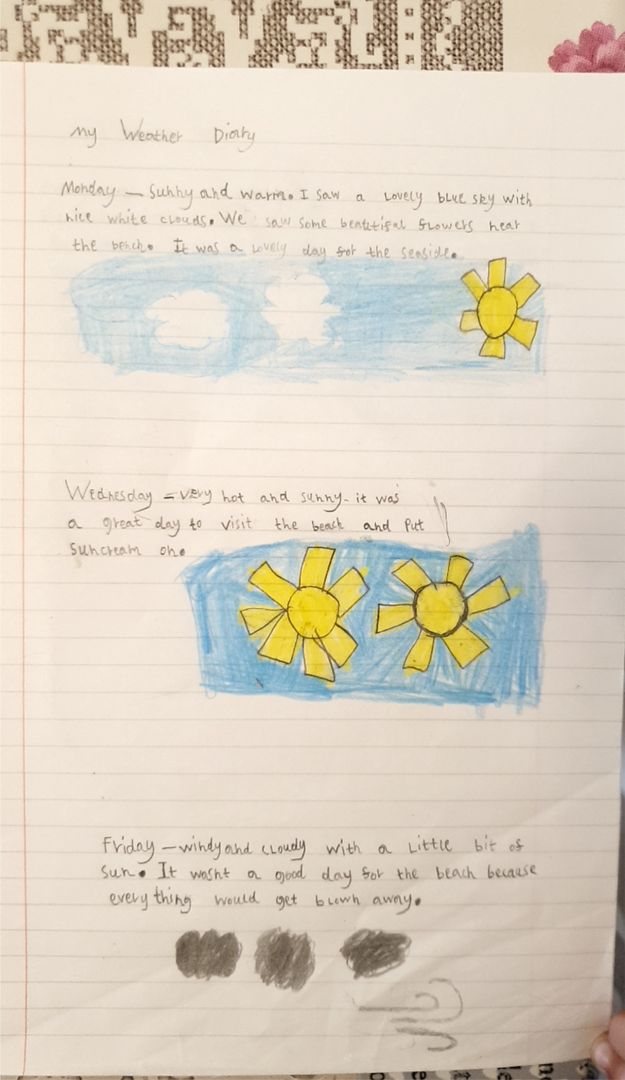 My Weather Diary
Monday — Sunny and warm. I saw a lovely blue sky with
nice white clouds. We saw some beatutifal flowers near
the bench. It was a lovely day for the seaside.
Wednesday = very hot and sunny - it was
a great day to visit the beach and put
suncream on.
Friday — windy and cloudy with a little bit of
sun. It wasnt a good day for the beach because
every thing would get blown away.